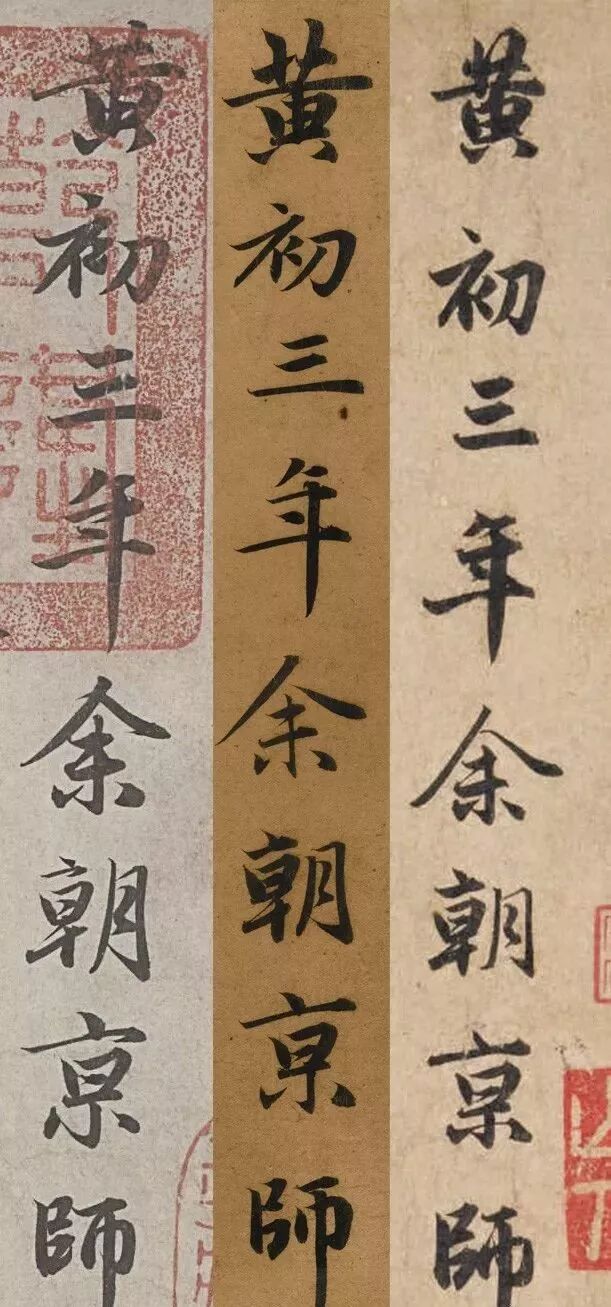 黄初三年余朝京師
黄初三年余朝京師
黄初三年余朝京師